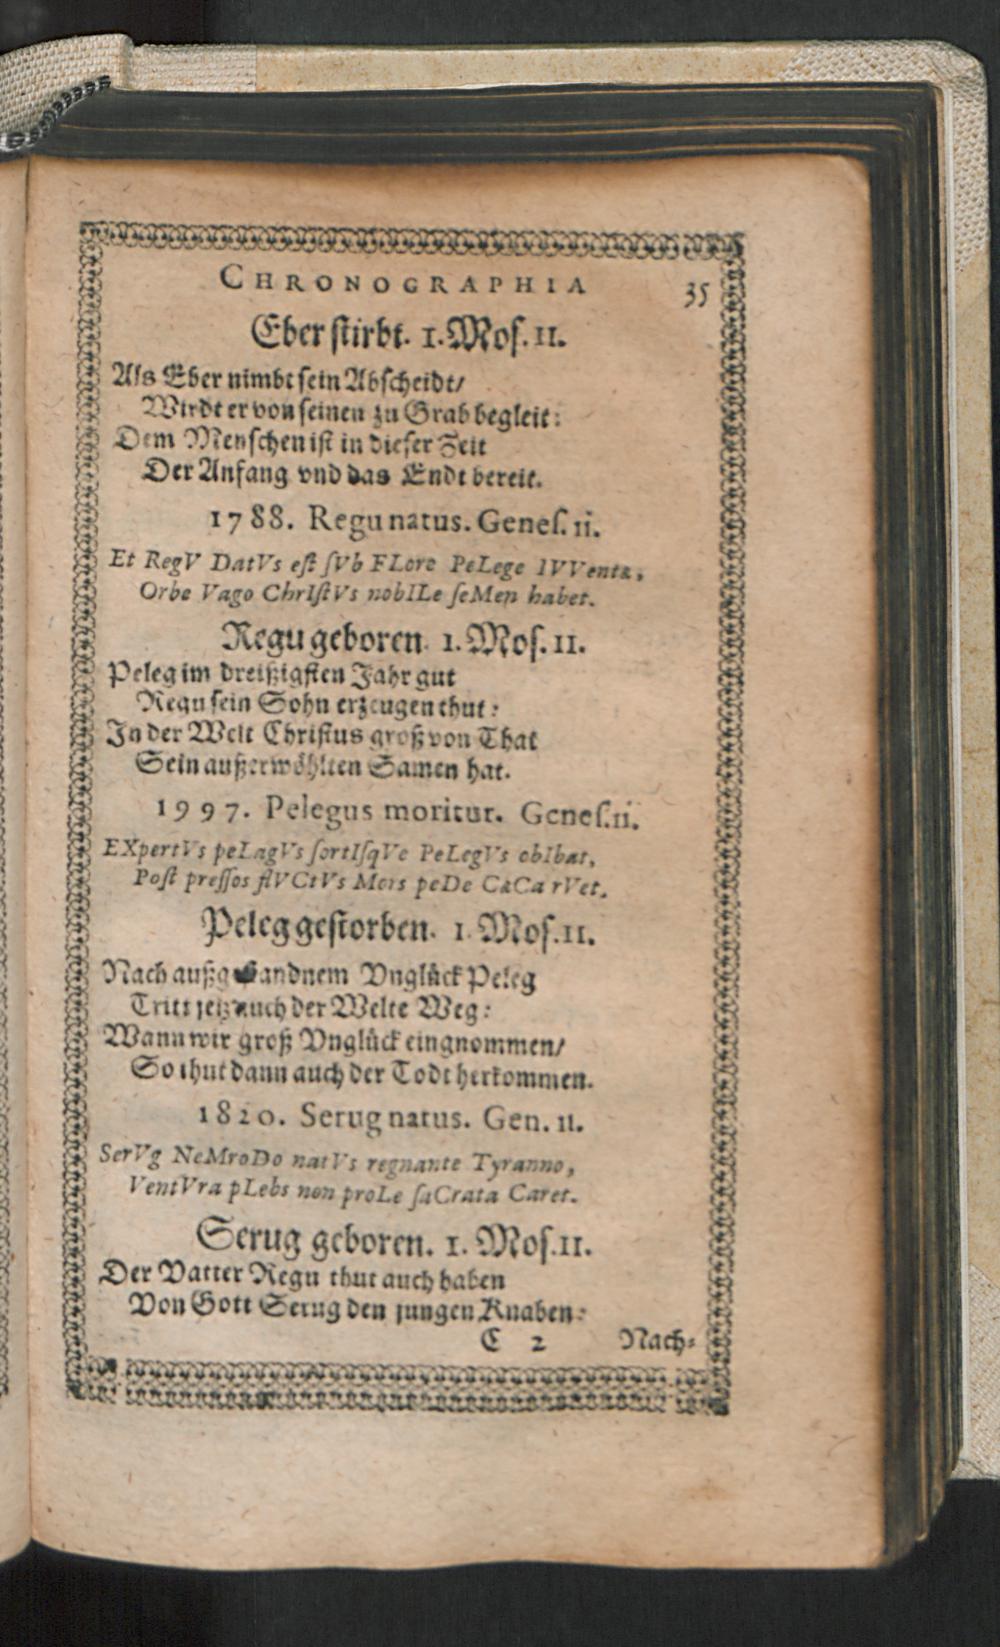 CHRONOGRAPHIA 35
Eber stirbt. 1. Mos. 11.
Als Eber nimbt sein Abscheidt/
Wirdt er von seinen zu Grab begleit:
Dem Menschen ist in dieser Zeit
Der Anfang vnd das Endt bereit.
1788. Regu natus. Genes. 11.
Et RegV DatVs est sVb FLore PeLege IVVenta,
Orbe Vago ChrIstVs nobILe seMen habet.
Regu geboren. 1. Mos. 11.
Peleg im dreißigsten Jahr gut
Regu sein Sohn erzeugen thut:
In der Welt Christus groß von That
Sein außerwöhlten Samen hat.
1997. Pelegus moritur. Genes. 11.
EXpertVs peLagVs sortIsqVe PeLegVs obIbat,
Post pressos flVCtVs Mors peDe CæCa rVet.
Peleg gestorben. 1. Mos. 11.
Nach Vnglück Peleg
Tritt jetz auch der Welte Weg:
Wann wir groß Vnglück eingnommen/
So thut dann auch der Todt herkommen.
1820. Serug natus. Gen. 11.
SerVg NeMroDo natVs regnante Tyranno,
VentVra pLebs non proLe saCrata Caret.
Serug geboren. 1. Mos. 11.
Der Vatter Regu thut auch haben
Von Gott Serug den jungen Knaben:
C 2 Nach-